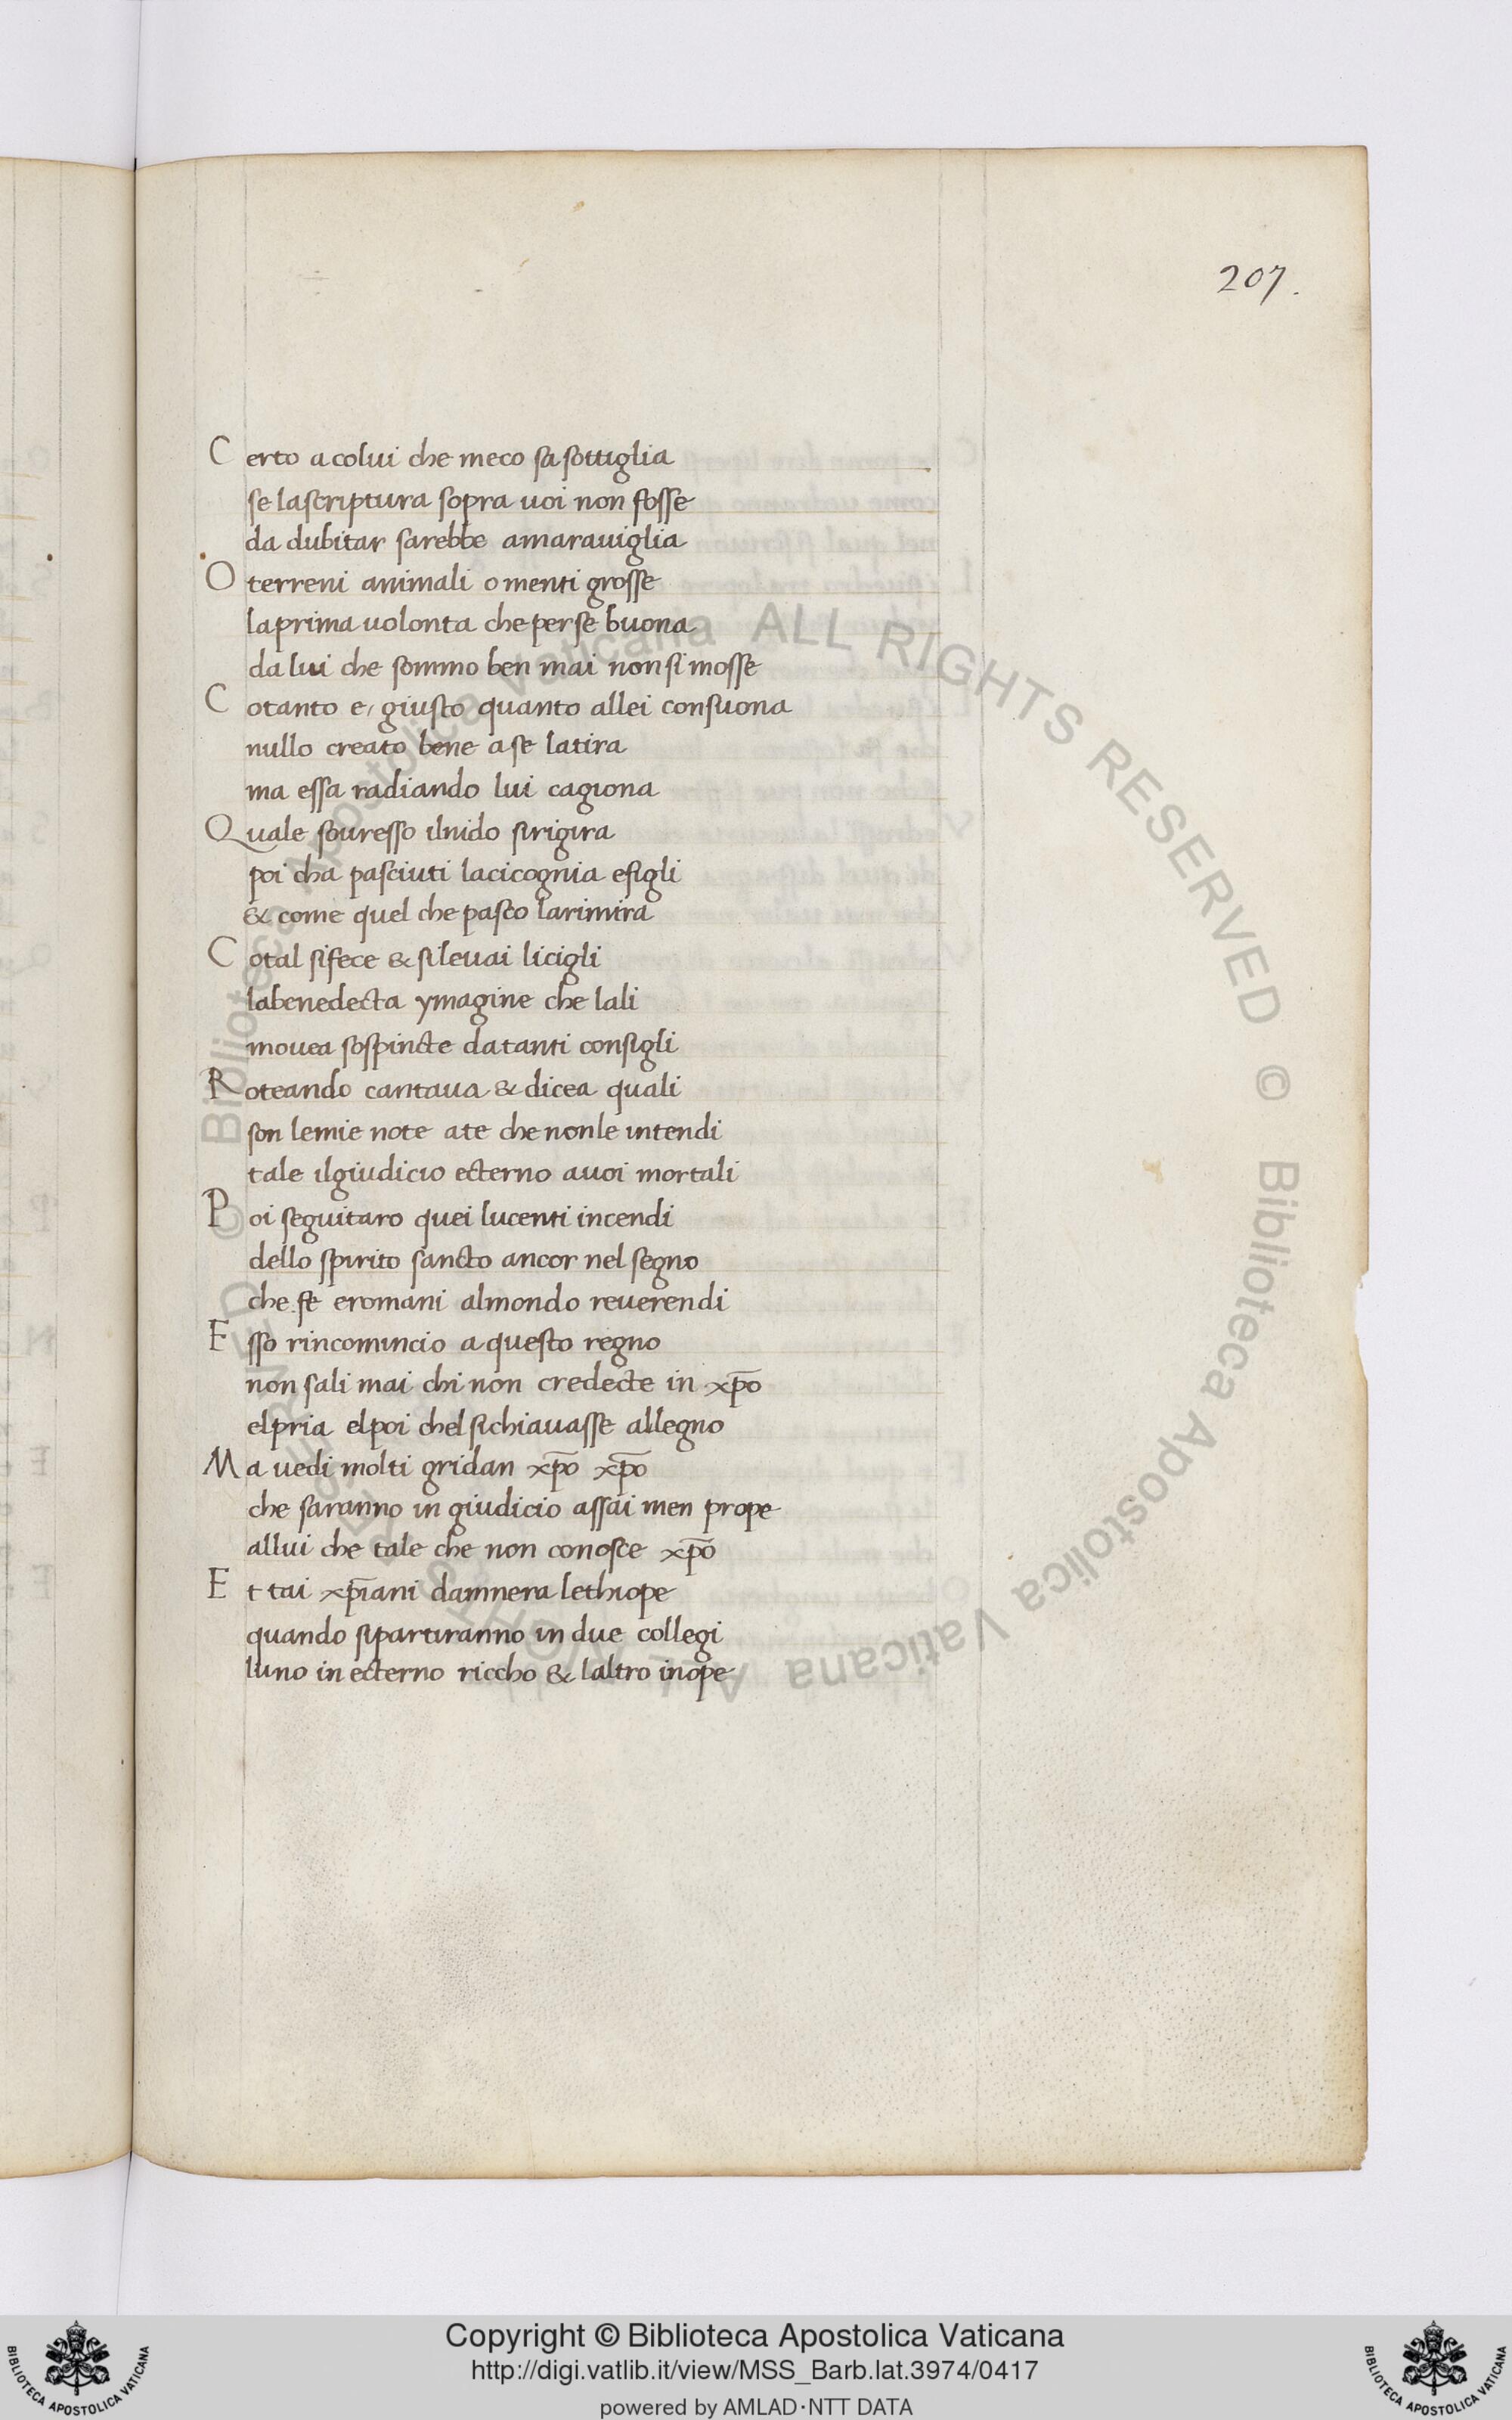 207.
Certo a colui che meco sa sottiglia
se lascriptura sopra uoi non fosse
da dubitar sarebbe amarauiglia
O terreni animali o menti grosse
laprima uolonta che perse buona
da lui che sommo ben mai non si mosse
Cotanto e, giusto quanto allei consuona
nullo creato bene a se latira
ma essa radiando lui cagiona
Quale souresso ilnido sirigira
poi cha pasciuti lacicognia efigli
& come quel che pasto larimira
Cotal sifece & si leuai licigli
labenedecta ymagine che lali
mouea sospincte datanti consigli
Roteando cantaua & dicea quali
son lemie note ate che nonle intendi
tale ilgiudicio ecterno auoi mortali
Poi seguitaro quei lucenti incendi
dello spirito sancto ancor nel segno
che fe eromani almondo reuerendi
Esso rincomincio a questo regno
non sali mai chi non credecte in xp̄o
elpria elpoi chel sichiauasse allegno
Ma uedi molti gridan xp̄o xp̄o
che saranno in giudicio assai men prope
allui che tale che non conosce xp̄o
Et tai xp̄iani damnera lethiope
quando sipartiranno in due collegi
luno in ecterno riccho & laltro inope
© Biblioteca Apostolica Vaticana ALL RIGHTS RESERVED © Biblioteca Apostolica Vaticana ALL RIGHTS RESERVED
Copyright © Biblioteca Apostolica Vaticana
http://digi.vatlib.it/view/MSS_Barb.lat.3974/0417
powered by AMLAD·NTT DATA
BIBLIOTECA APOSTOLICA VATICANA
BIBLIOTECA APOSTOLICA VATICANA